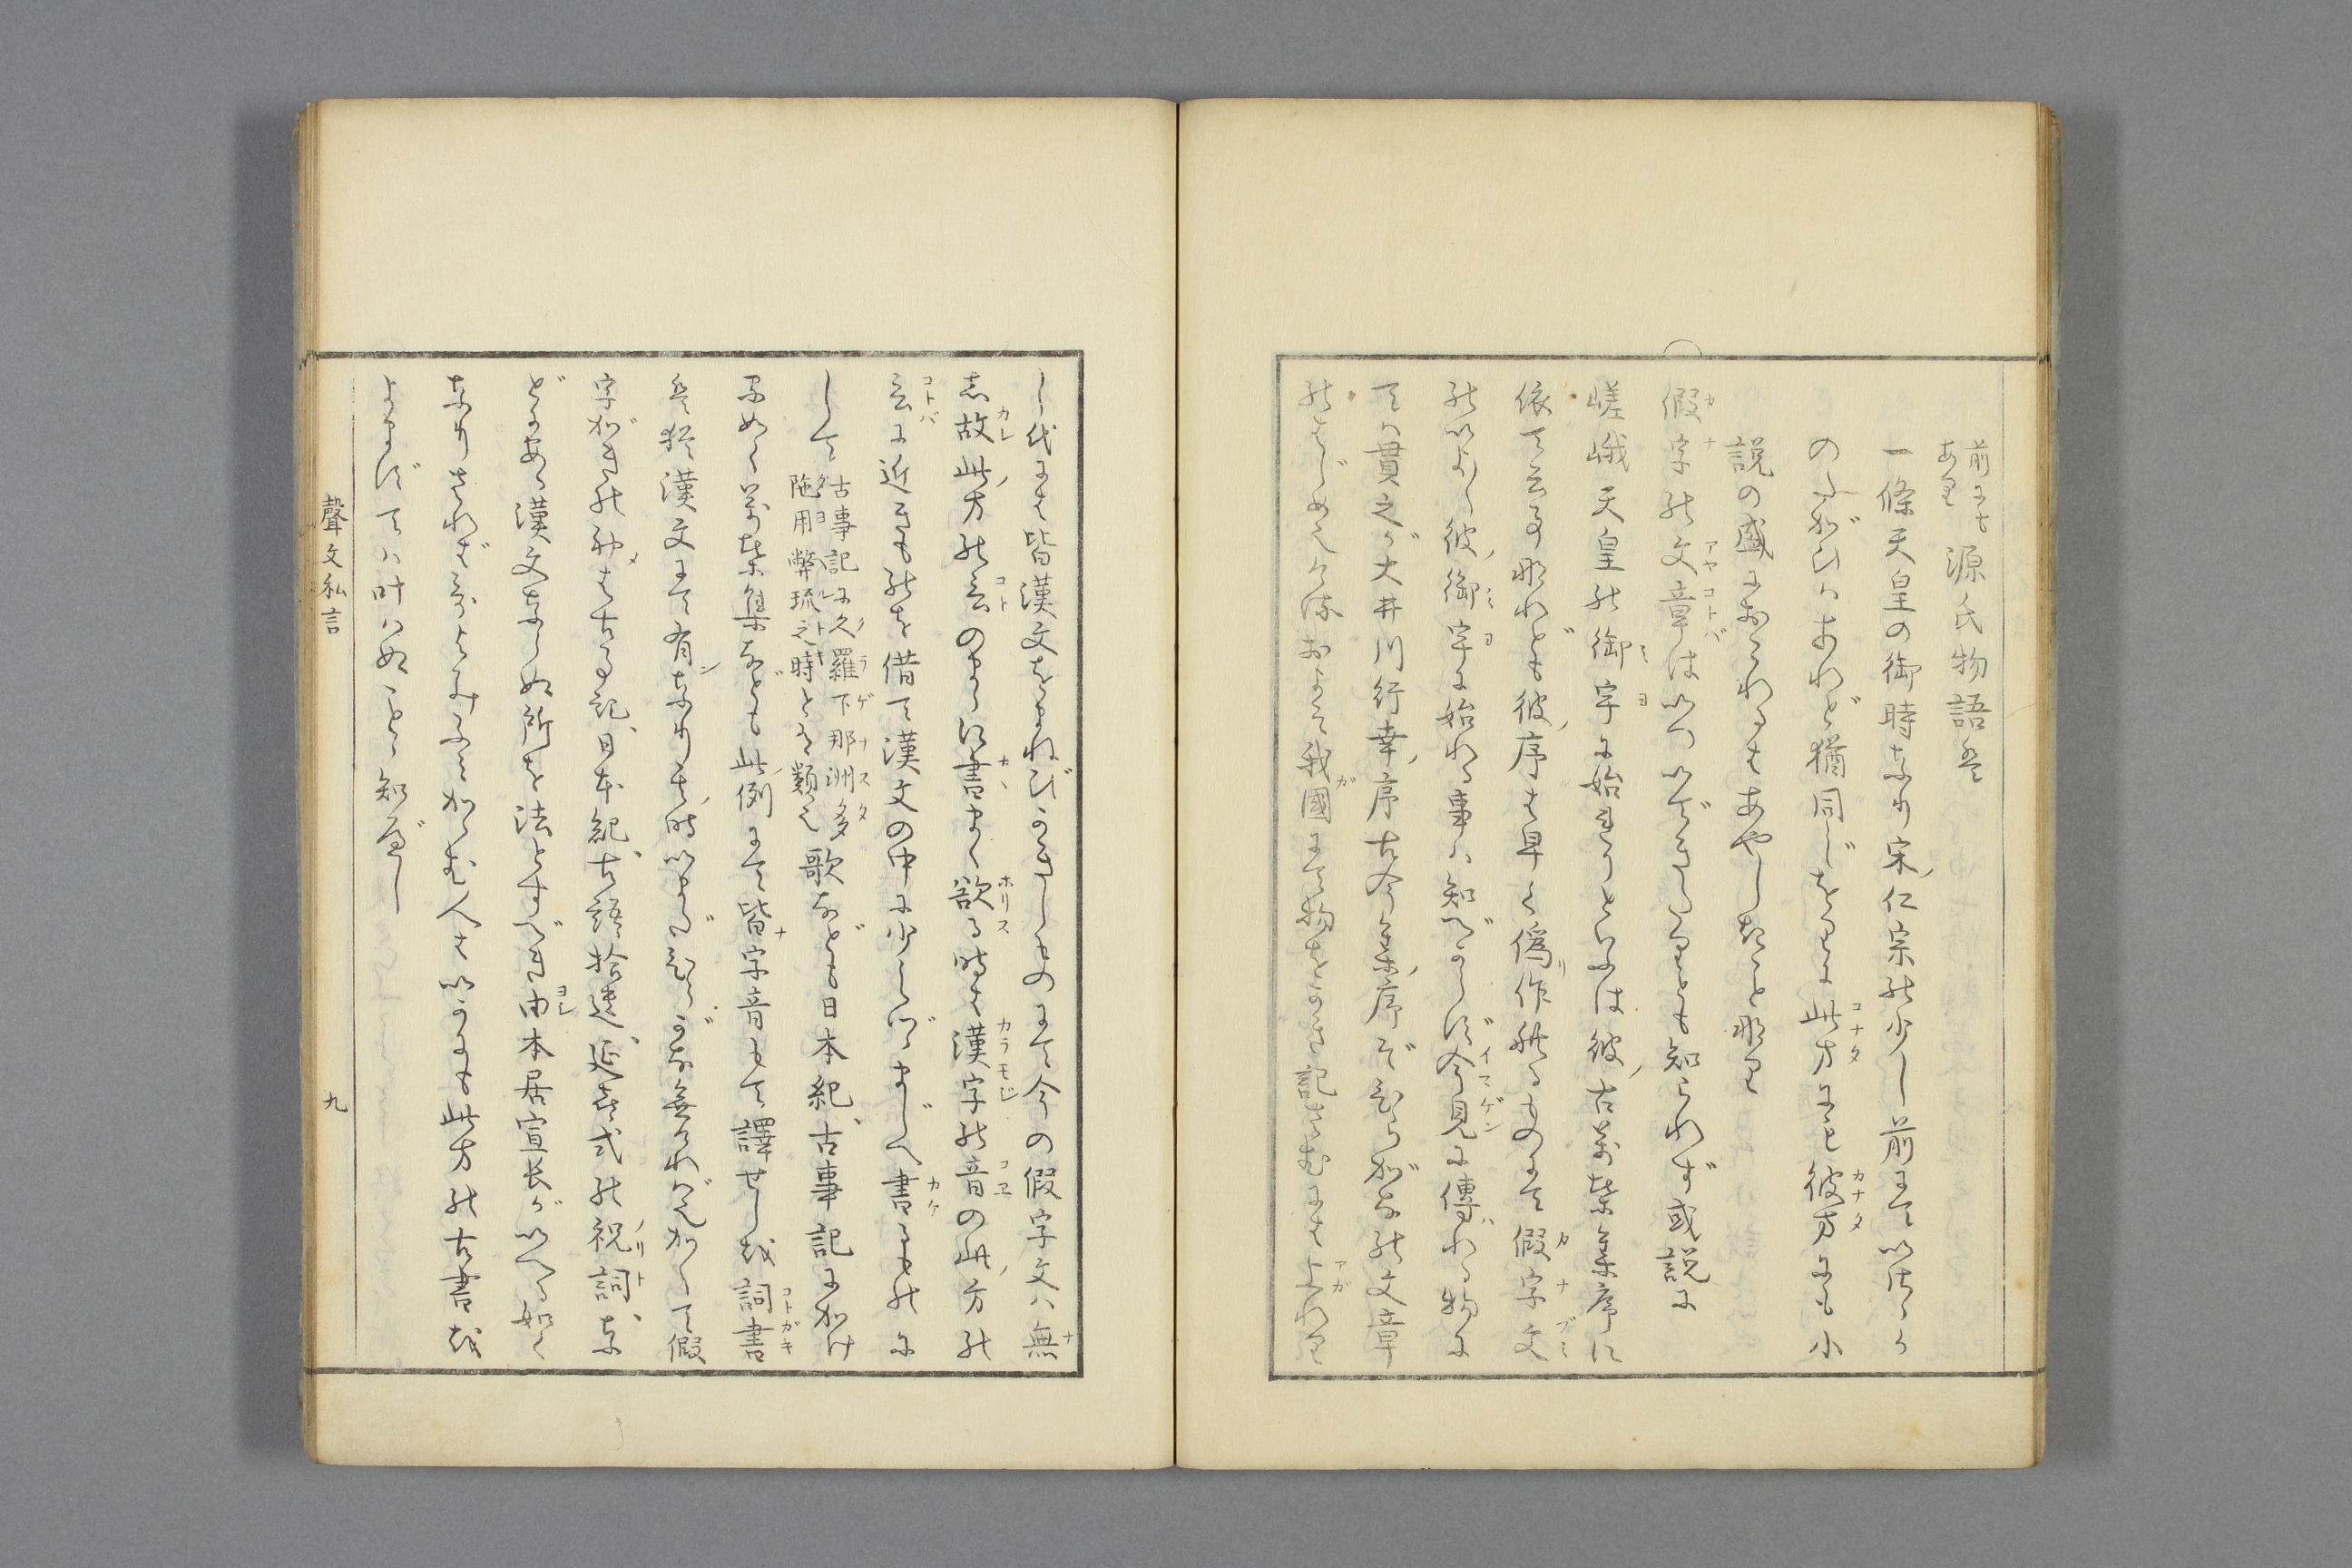 前にも
あり
源氏物語は
一條天皇の御時なり宋ノ仁宗の少し前にていはゝ
のたがひはあれど猶同じをりに此方にも彼方にも小
説の盛におこれるもあやしきことなり
假字の文章はいついできたりとも知られず或説に
嵯峨天皇の御宇に始まりといふは彼ノ古萬葉集序に
依て云る那れども彼ノ序は早く偽作れるものにて假字文
のいまだ彼ノ御宇に始れる事は知べからず今見に傳れる物に
ては貫之が大井川行幸ノ序古今集ノ序ぞひらがなの文章
のはじめには有けるおよそ我國にて物をかき記さむには上れり
し代には皆漢文をまねびかきしものにて今の假字文は無
き故此ノ方の言のまゝに書まく欲る時は漢字の音の此ノ方の
言に近きものを借て漢文の中に少しづゝまじへ書るものに
して
古事記に久羅下那洲多
陁用弊琉之時とある類也
歌なども日本紀、古事記にかけ
るめく萬葉集なども此ノ例にて皆字音もて譯せしを詞書
は猶漢文にて有しなりそノ時いまだひらがな無ければかくて假
字がきのふみは古事記、日本紀、古語拾遺、延喜式の祝詞、な
どにあり漢文ならぬ所を法とすべき由本居宣長がいへる如く
なりされば言よみふみかゝむ人はいかにも此方の古書を
よまずては叶はぬことゝ知べし
聲文私言
九